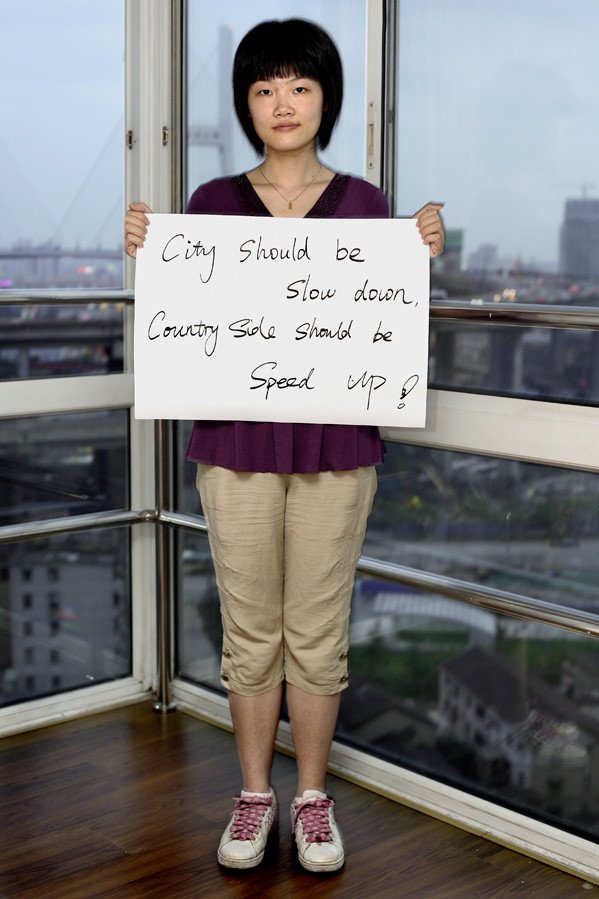 City Should be
Slow down,
Country Side Should be
Speed Up!